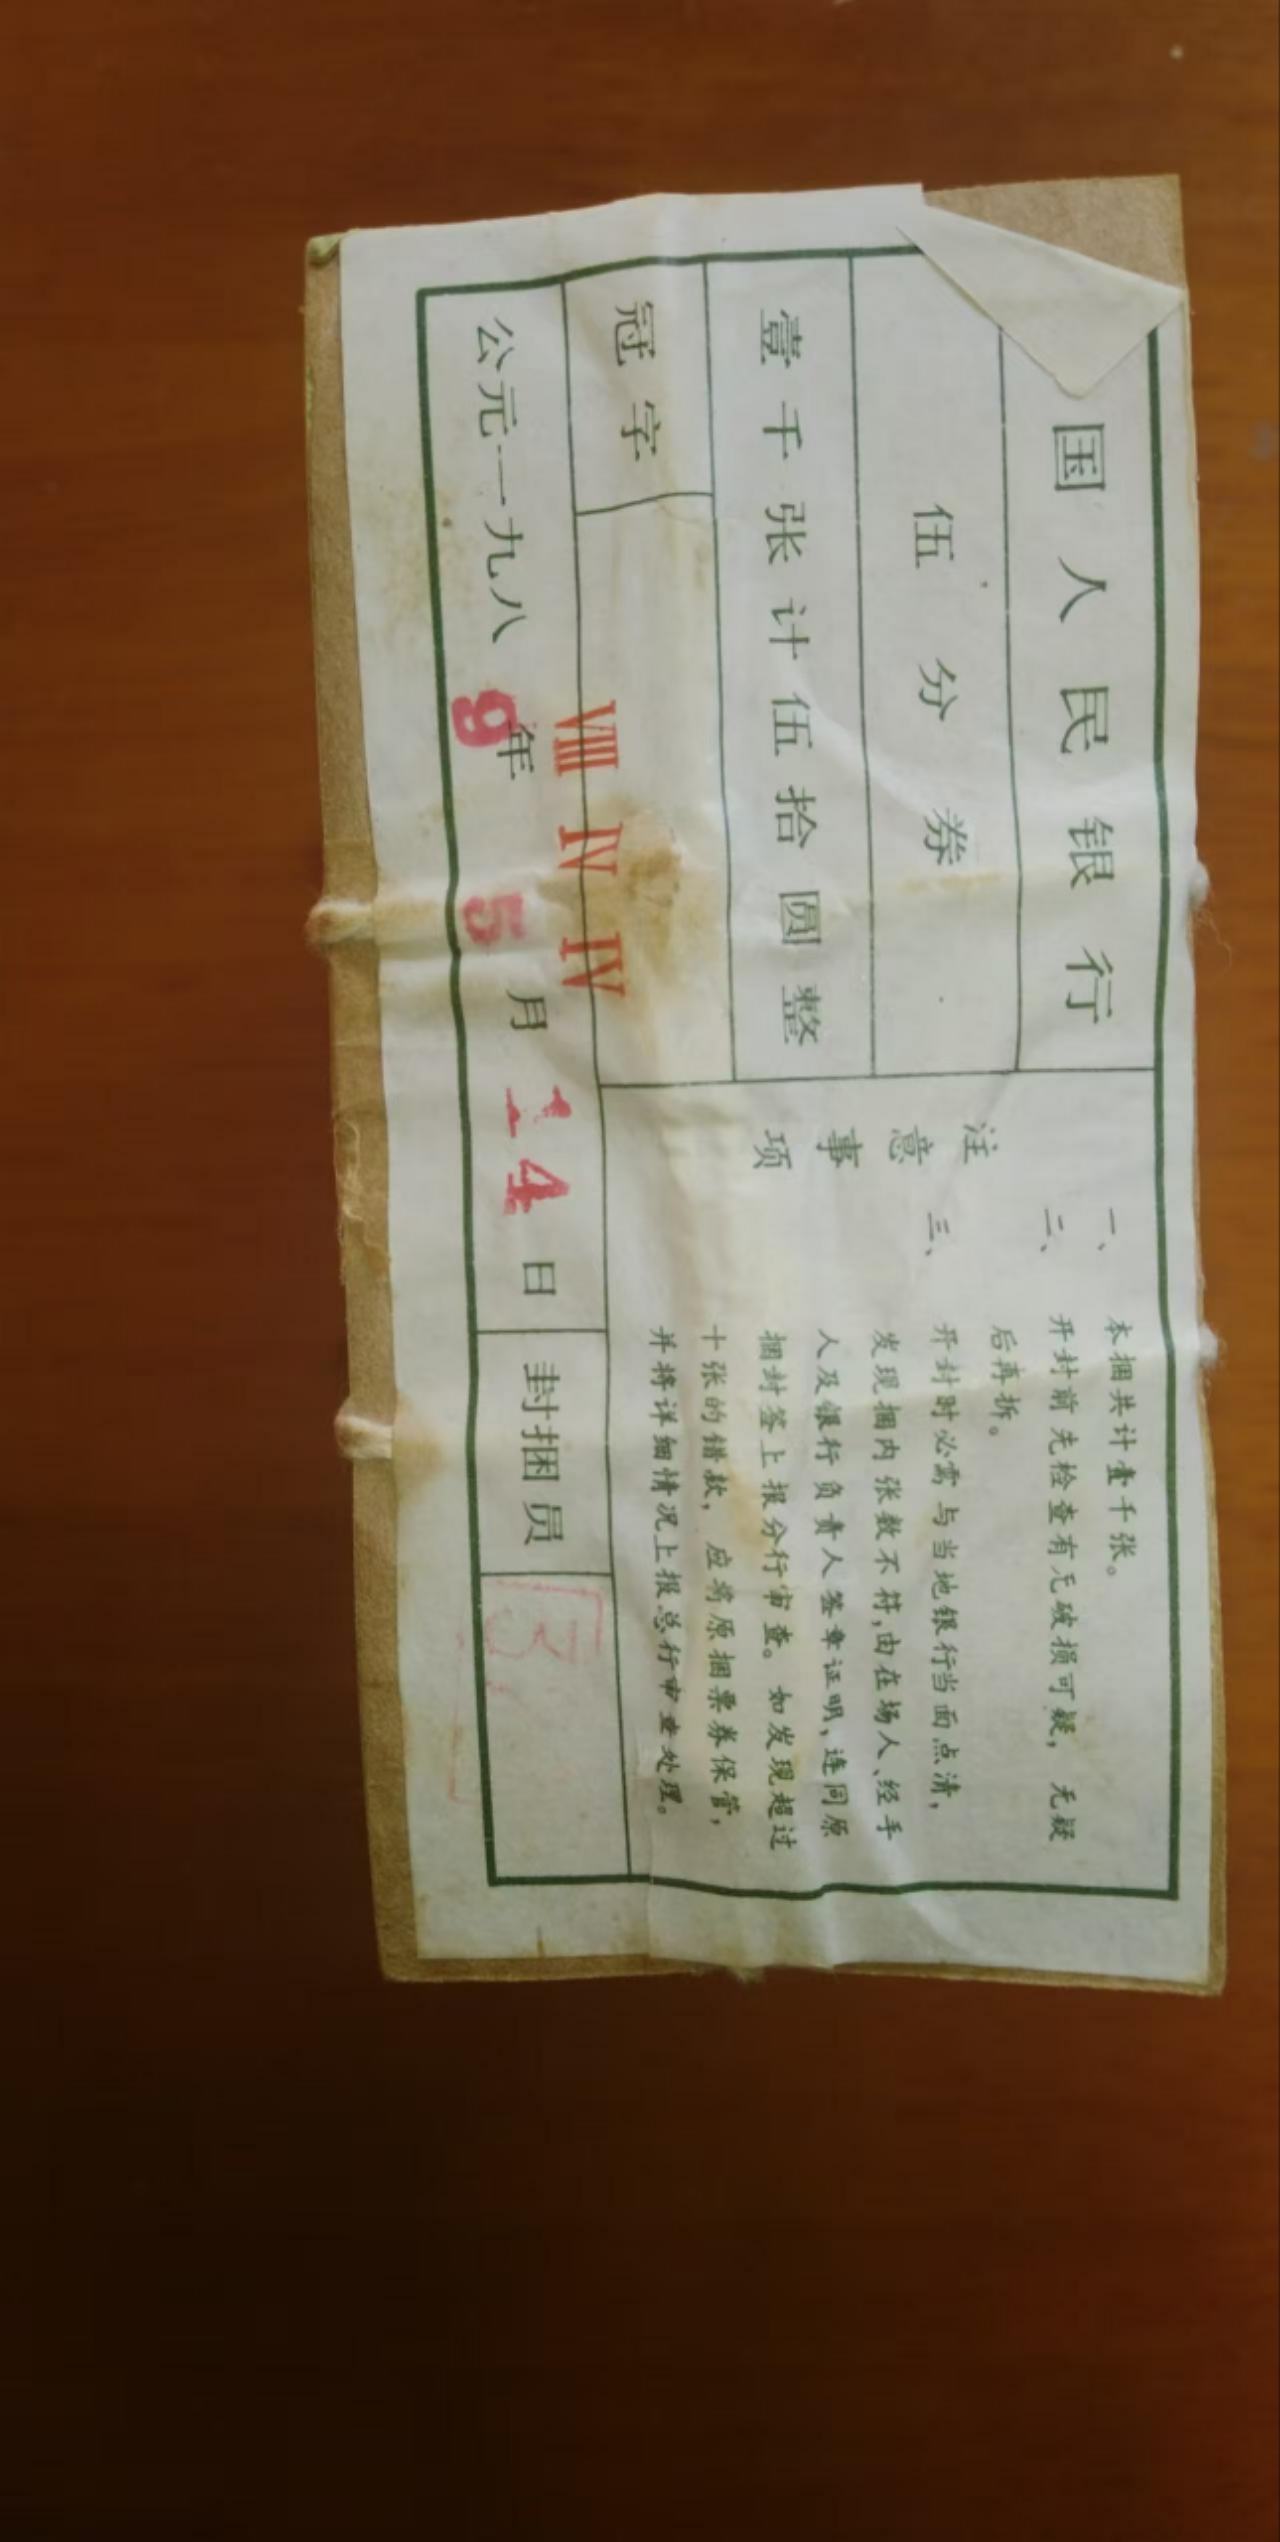 国人民银行
伍分券
壹千张计伍拾圆整
冠字
VIII IV IV
公元一九八9年5月14日
封捆员
注意事项
一、本捆共计壹千张。
二、开封前先检查有无破损可疑，无疑
后再拆。
三、开封时必需与当地银行当面点清，
发现捆内张数不符，由在场人、经手
人及银行负责人签章证明，连同原
捆封签上报分行审查。如发现超过
十张的错款，应将原捆票券保管，
并将详细情况上报总行审查处理。